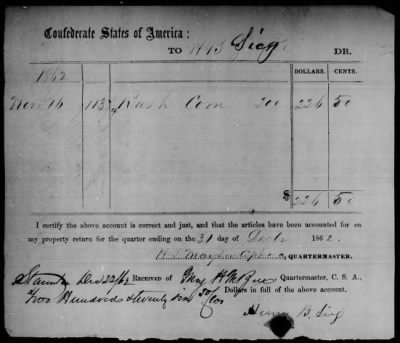 Confederate States of America:
TO H B Sieg DR.
DOLLARS. CENTS.
1862
Nov 16 113 Bush Corn 200 226 50
$ 226 50
I certify the above account is correct and just, and that the articles have been accounted for on
my property return for the quarter ending on the 31 day of Decbr 1862.
QUARTERMASTER.
Staunton Dec 22/62 RECEIVED OF Maj H M Quartermaster, C. S. A.,
Two Hundred & twenty six 50/100 Dollars in full of the above account.
Henry B. Sieg